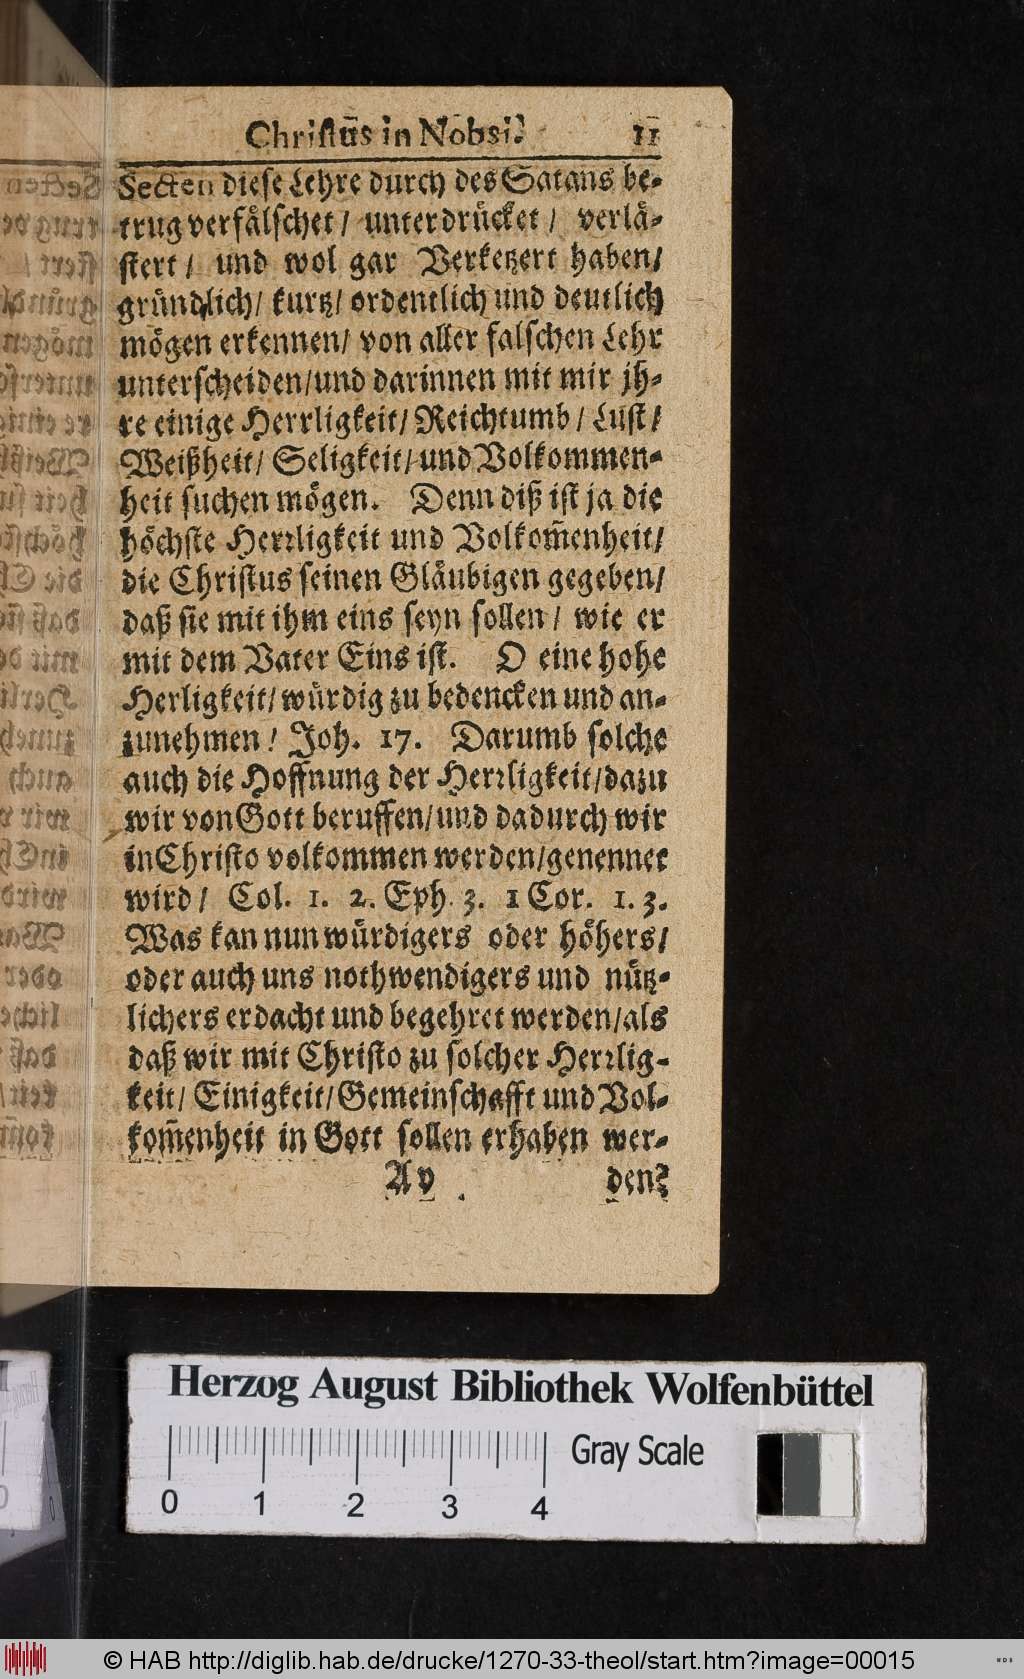 Christus in Nobis. 11
Secten diese Lehre durch des Satans be-
trug verfälschet / unterdrücket / verlä-
stert / und wol gar Verketzert haben /
gründlich / kurtz / ordentlich und deutlich
mögen erkennen / von aller falschen Lehr
unterscheiden / und darinnen mit mir jh-
re einige Herrligkeit / Reichtumb / Lust /
Weißheit / Seligkeit / und Volkommen-
heit suchen mögen. Denn diß ist ja die
höchste Herrligkeit und Volkom̃enheit /
die Christus seinen Gläubigen gegeben /
daß sie mit ihm eins seyn sollen / wie er
mit dem Vater Eins ist. O eine hohe
Herligkeit / würdig zu bedencken und an-
zunehmen! Joh. 17. Darumb solche
auch die Hoffnung der Herrligkeit / dazu
wir von Gott beruffen / und dadurch wir
in Christo volkommen werden / genennet
wird / Col. 1. 2. Eph. 3. 1 Cor. 1. 3.
Was kan nun würdigers oder höhers /
oder auch uns nothwendigers und nütz-
lichers erdacht und begehret werden / als
daß wir mit Christo zu solcher Herrlig-
keit / Einigkeit / Gemeinschafft und Vol-
kom̃enheit in Gott sollen erhaben wer-
A v den?
Herzog August Bibliothek Wolfenbüttel
0 1 2 3 4 Gray Scale
© HAB http://diglib.hab.de/drucke/1270-33-theol/start.htm?image=00015